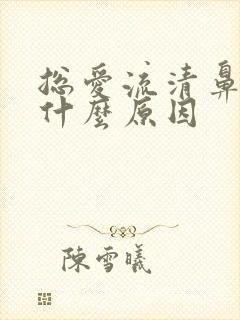 總愛流清鼻
什麼原因
陳雪曦